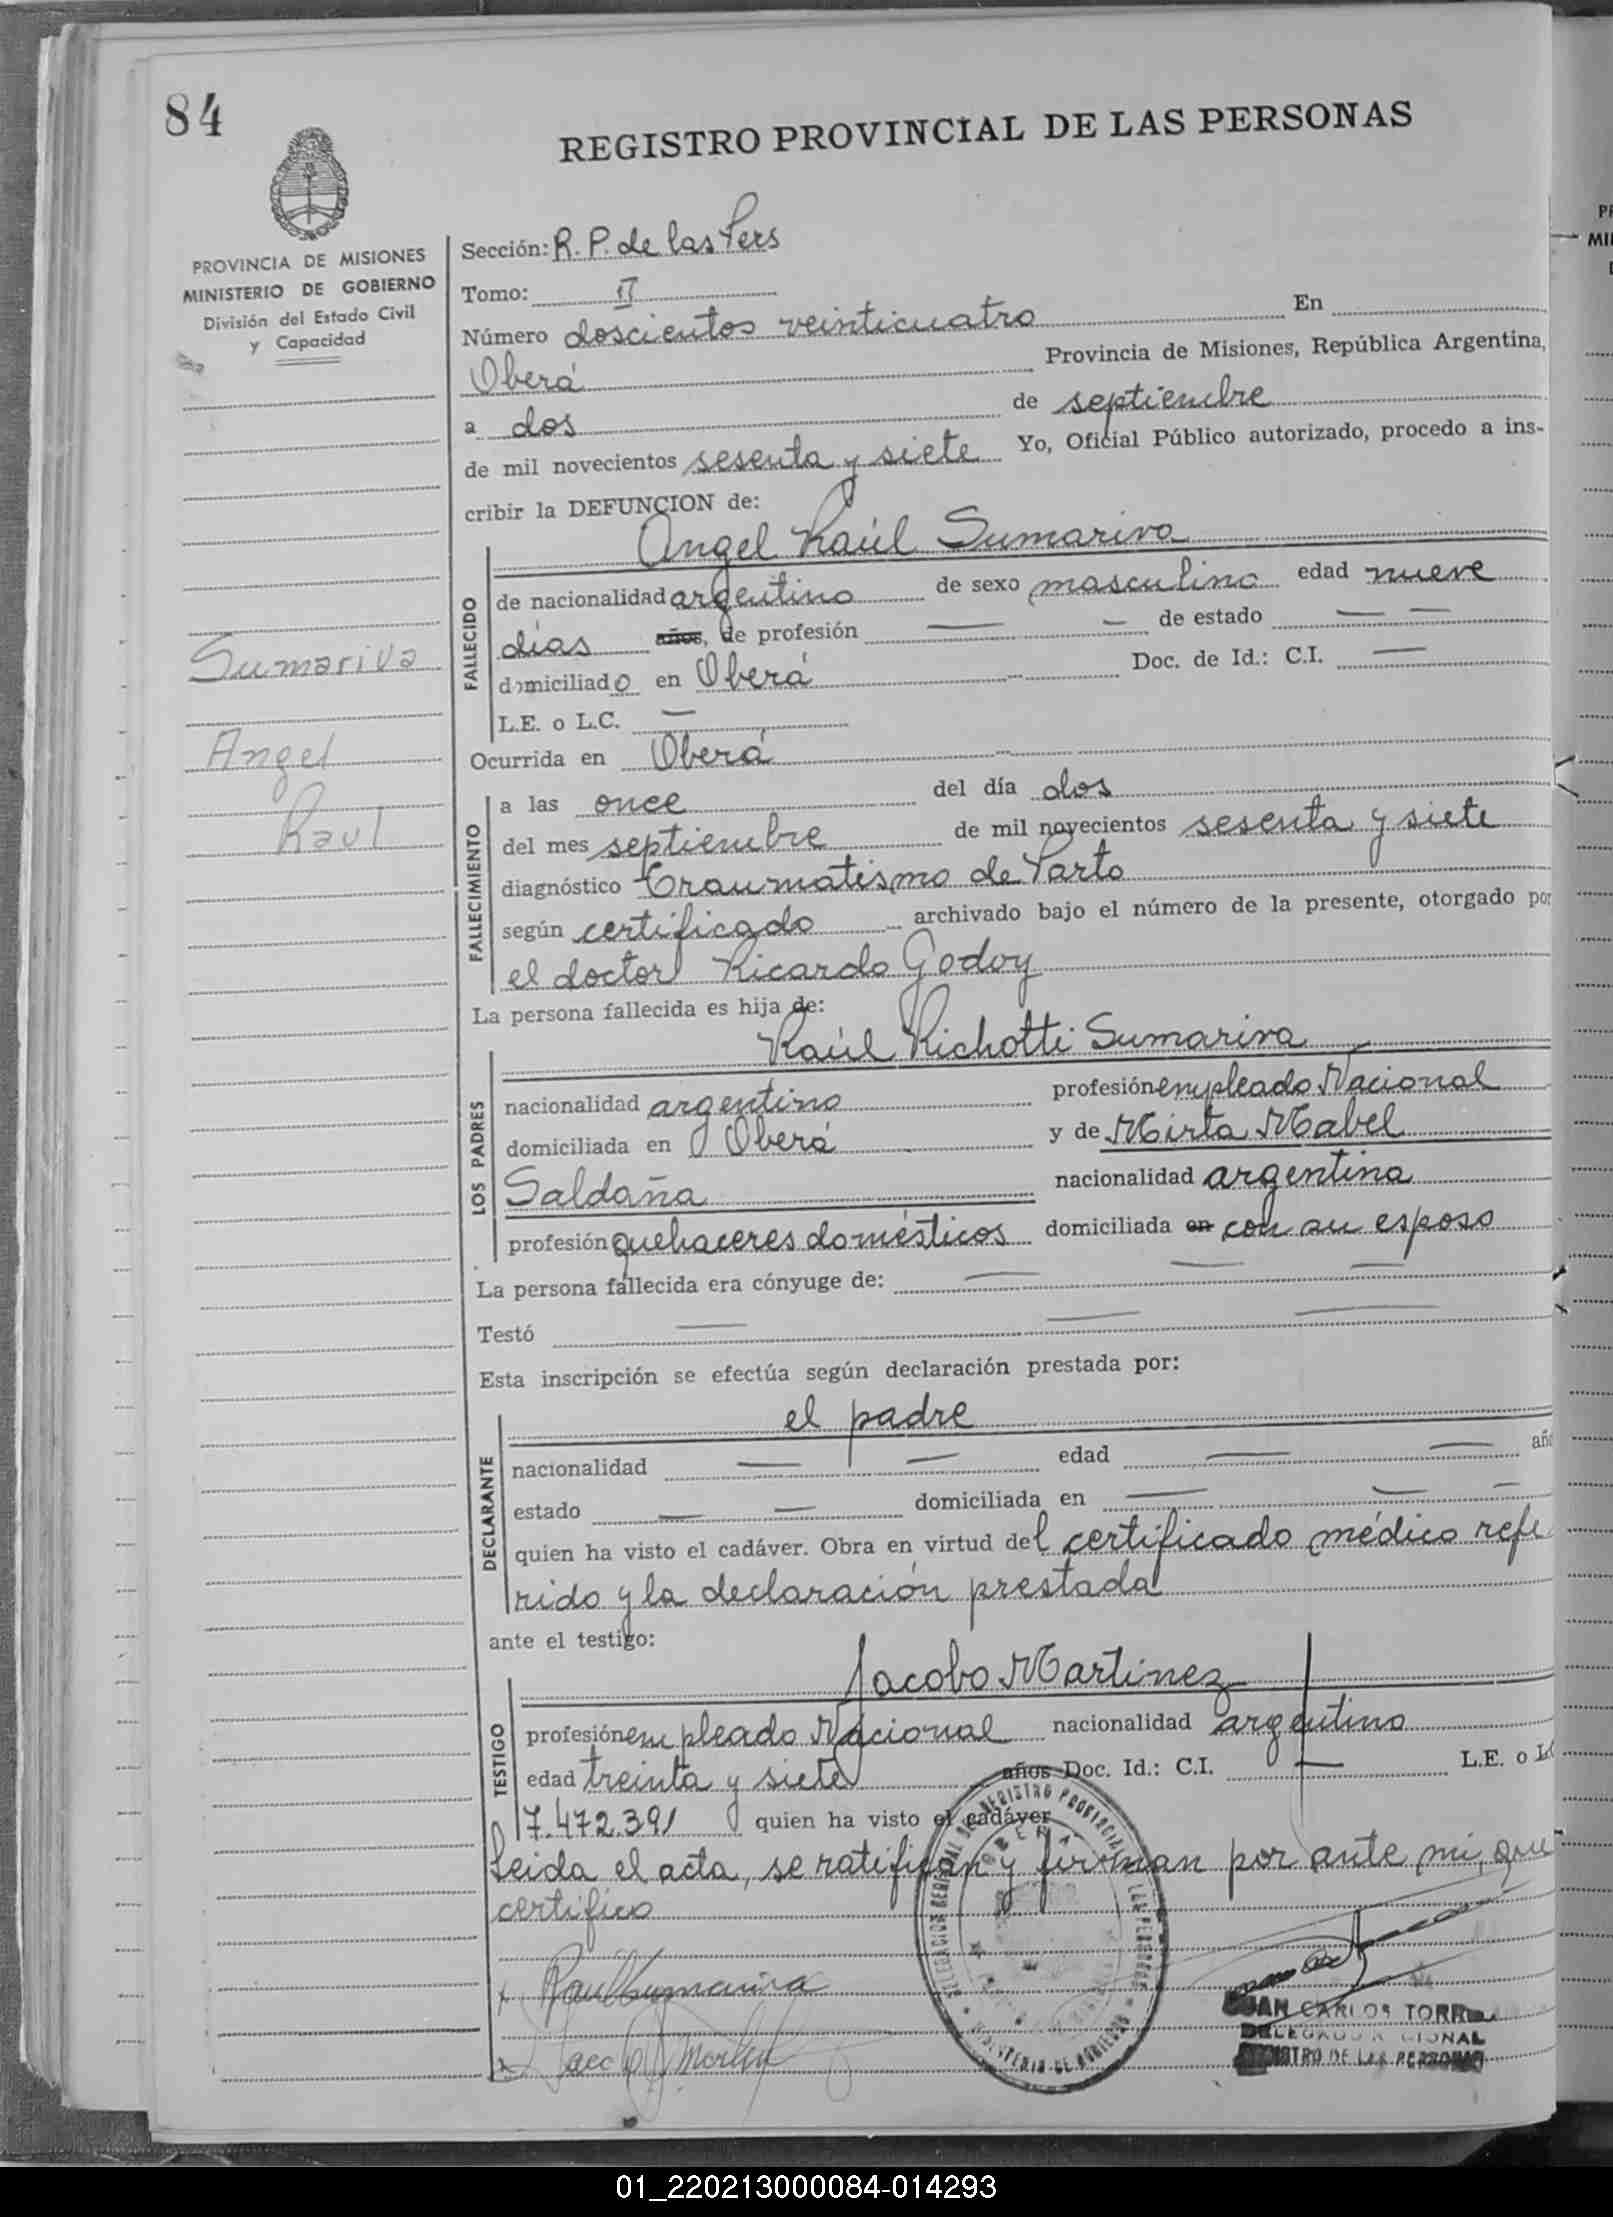 84
REGISTRO PROVINCIAL DE LAS PERSONAS
PROVINCIA DE MISIONES
MINISTERIO DE GOBIERNO
División del Estado Civil
y Capacidad
Sección: R. P. de las Pers
Tomo: II
Número doscientos veinticuatro En
Oberá Provincia de Misiones, República Argentina,
a dos de septiembre
de mil novecientos sesenta y siete Yo, Oficial Público autorizado, procedo a ins-
cribir la DEFUNCION de:
Angel Raúl Sumariva
FALLECIDO
de nacionalidad argentino de sexo masculino edad nueve
días años, de profesión — — de estado — —
domiciliado en Oberá Doc. de Id.: C.I. —
L.E. o L.C. —
Sumariva
Angel
Raul
Ocurrida en Oberá
FALLECIMIENTO
a las once del día dos
del mes septiembre de mil novecientos sesenta y siete
diagnóstico Traumatismo de Parto
según certificado archivado bajo el número de la presente, otorgado por
el doctor Ricardo Godoy
La persona fallecida es hija de:
Raúl Richotti Sumariva
LOS PADRES
nacionalidad argentino profesión empleado Nacional
domiciliada en Oberá y de Mirta Mabel
Saldaña nacionalidad argentina
profesión quehaceres domésticos domiciliada en con su esposo
La persona fallecida era cónyuge de: — — —
Testó — — —
Esta inscripción se efectúa según declaración prestada por:
el padre
DECLARANTE
nacionalidad — — edad — — añ
estado — — domiciliada en — — —
quien ha visto el cadáver. Obra en virtud del certificado médico refe
rido y la declaración prestada
ante el testigo:
Jacobo Martinez
TESTIGO
profesión empleado Nacional nacionalidad argentino
edad treinta y siete años Doc. Id.: C.I. — L.E. o L
7.472.391 quien ha visto el cadáver
Leida el acta, se ratifican y firman por ante mi, que
certifico
x Raul Sumariva
DELEGACION REGIONAL DEL REGISTRO PROVINCIAL DE LAS PERSONAS
OBERA
MINISTERIO DE GOBIERNO
JUAN CARLOS TORR
REGISTRO DE LAS PERSONAS
01_220213000084-014293